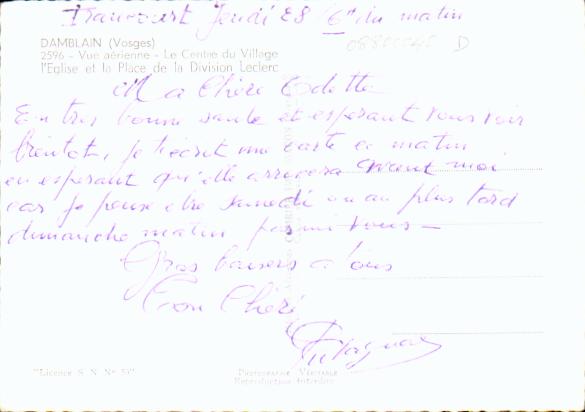 Jeudi 28 6h du matin
08800048 D
DAMBLAIN (Vosges)
2596 - Vue aérienne - Le Centre du Village
l'Eglise et la Place de la Division Leclerc
Ma Chère Odette
En très bonne santé et esperant vous voir
bientot, je t'écrit une carte ce matin
en esperant qu'elle arrivera avant moi
car je pense etre samedi ou au plus tard
dimanche matin parmi vous -
Gros baisers a tous
Ton Chéri
"Licence S N N° 57"
PHOTOGRAPHIE VÉRITABLE
Reproduction Interdite